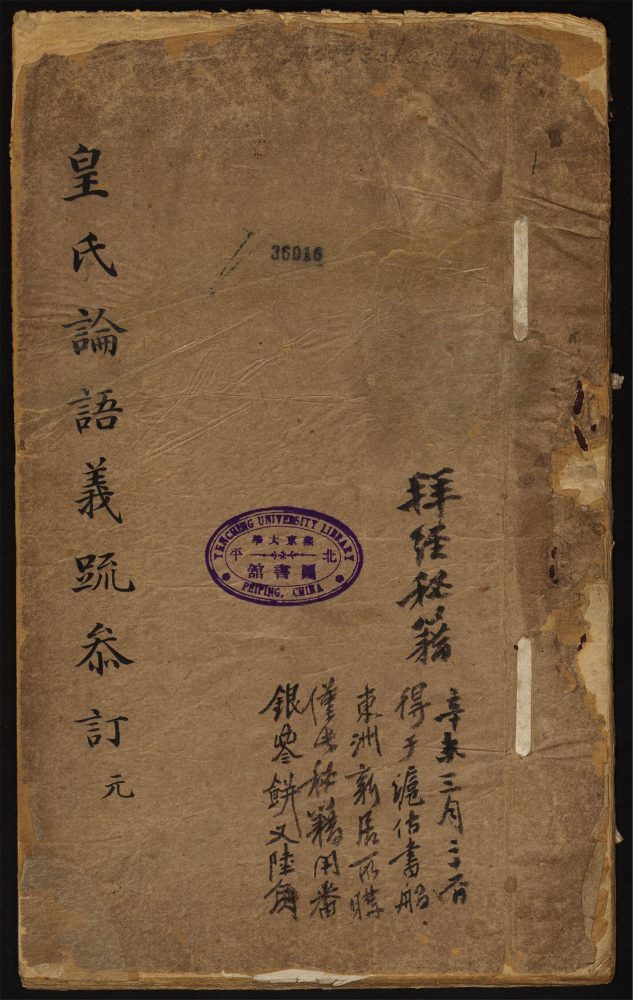 拜經秘籍
辛未三月
得于滬估書船
東洲新居所購
僅此秘籍用番
銀叁餅又陸角
36016
YENCHING UNIVERSITY LIBRARY
燕京大學
北平
圖書館
PEIPING, CHINA
皇氏論語義䟽叅訂
元